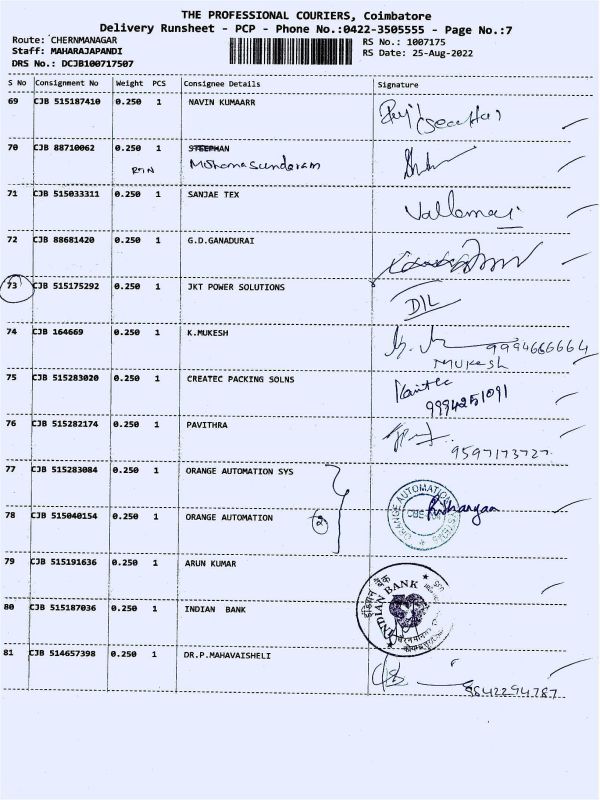 THE PROFESSIONAL COURIERS, Coimbatore
Delivery Runsheet - PCP - Phone No.:0422-3505555 - Page No.:7
Route: CHERNMANAGAR
RS No.: 1007175
Staff: MAHARAJAPANDI
RS Date: 25-Aug-2022
DRS No.: DCJB100717507
S No Consignment No Weight PCS Consignee Details Signature
69 CJB 515187410 0.250 1 NAVIN KUMAARR
70 CJB 88710062 0.250 1 STEEPHAN
RTN
71 CJB 515033311 0.250 1 SANJAE TEX
72 CJB 88681420 0.250 1 G.D.GANADURAI
73 CJB 515175292 0.250 1 JKT POWER SOLUTIONS
D/L
74 CJB 164669 0.250 1 K.MUKESH 9994666664
MUKesh
75 CJB 515283020 0.250 1 CREATEC PACKING SOLNS
9994251091
76 CJB 515282174 0.250 1 PAVITHRA
9597173727
77 CJB 515283084 0.250 1 ORANGE AUTOMATION SYS
78 CJB 515040154 0.250 1 ORANGE AUTOMATION 2
ORANGE AUTOMATION SYSTEMS
79 CJB 515191636 0.250 1 ARUN KUMAR
80 CJB 515187036 0.250 1 INDIAN BANK
इंडियन बैंक
INDIAN BANK
81 CJB 514657398 0.250 1 DR.P.MAHAVAISHELI
9842294787